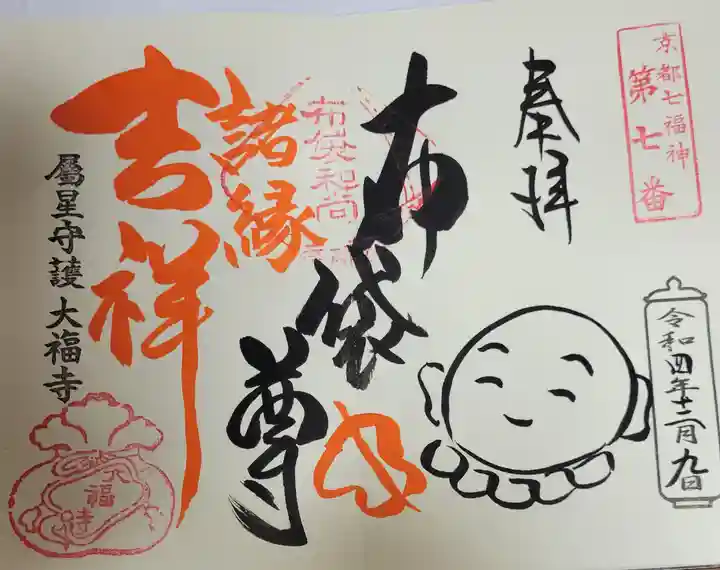 京都七福神
第七番
奉拝
令和四年十二月九日
布袋尊
布袋和尚
諸縁
吉祥
属星守護 大福寺
大福寺